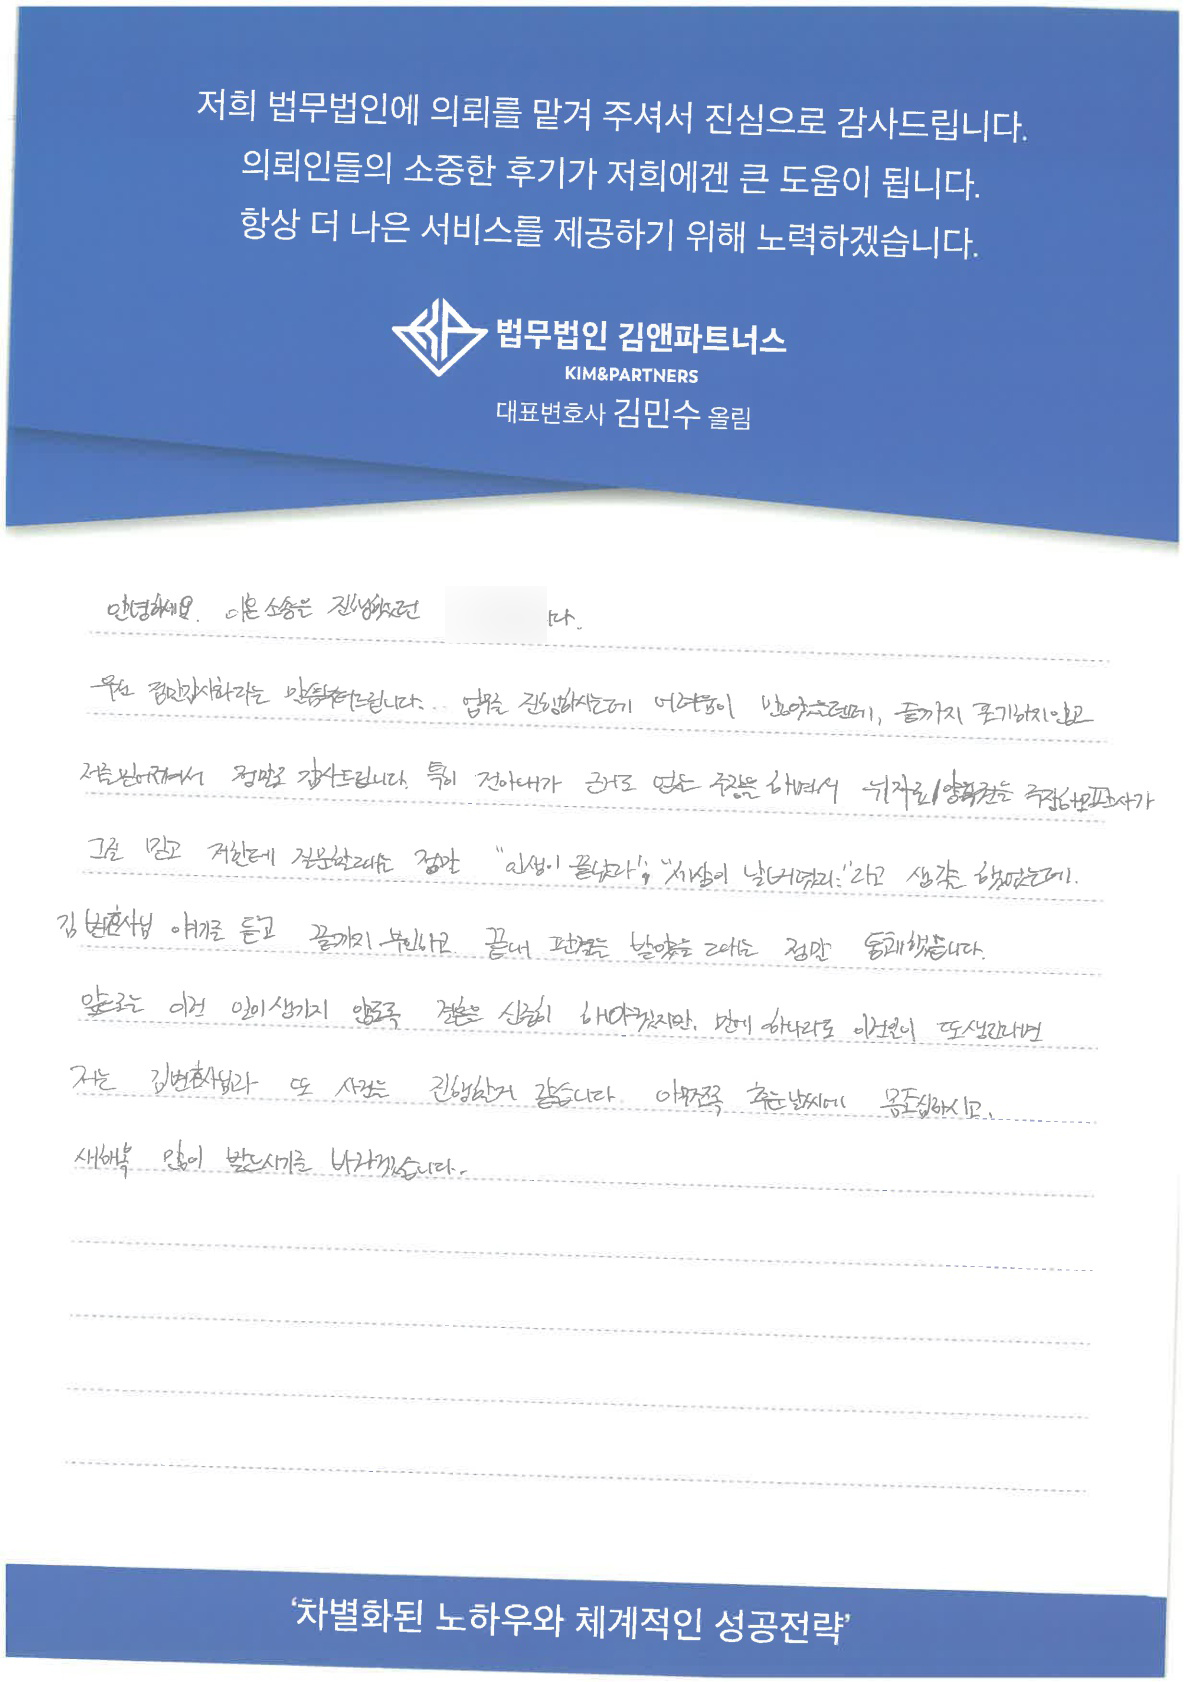 저희 법무법인에 의뢰를 맡겨 주셔서 진심으로 감사드립니다.
의뢰인들의 소중한 후기가 저희에겐 큰 도움이 됩니다.
항상 더 나은 서비스를 제공하기 위해 노력하겠습니다.
법무법인 김앤파트너스
KIM&PARTNERS
대표변호사 김민수 올림
안녕하세요. 이혼소송을 진행했던 다.
우선 정말감사하다는 말씀부터드립니다.. 업무를 진행하시는데 어려움이 많았을텐데, 끝까지 포기하지않고
저를 믿어주셔서 정말로 감사드립니다. 특히 전아내가 근거도 없는 주장을 하면서 위자료/양육권을 주장하고 판사가
그걸 믿고 저한테 질문할때는 정말 "인생이 끝났다", "세상이 날 버렸다."라고 생각을 했었는데.
김변호사님 얘기를 듣고 끝까지 부인하고 끝내 판결을 받았을 때는 정말 통쾌했습니다.
앞으로는 이런 일이생기지 않도록 결혼을 신중히 해야겠지만, 만에 하나라도 이런일이 또생긴다면
저는 김변호사님과 또 사건을 진행할거 같습니다. 아무쪼록 추운날씨에 몸조심하시고,
새해복 많이 받으시기를 바라겠습니다.
'차별화된 노하우와 체계적인 성공전략'